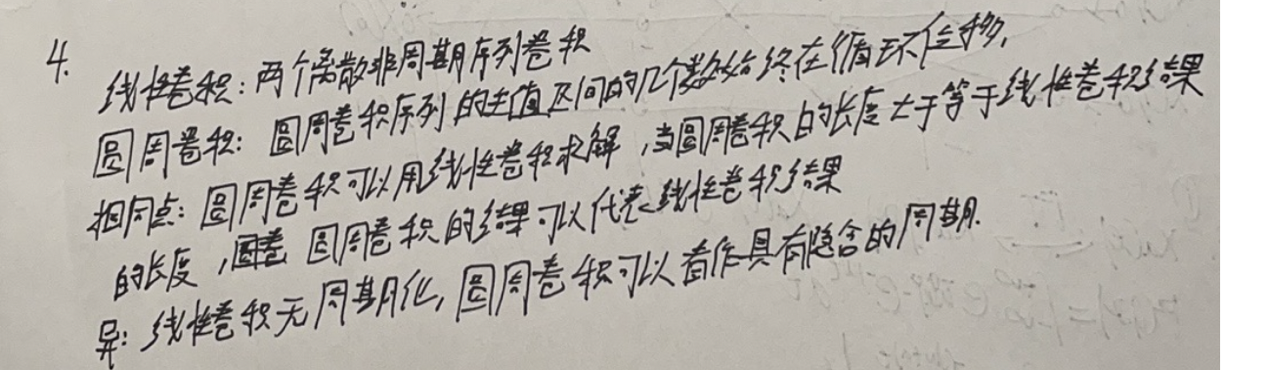 4.
线性卷积：两个离散非周期序列卷积
圆周卷积：圆周卷积序列的主值区间的几个数始终在循环位移，
相同点：圆周卷积可以用线性卷积求解，当圆周卷积的长度大于等于线性卷积结果
的长度，圆周卷积的结果可以代表线性卷积结果
异：线性卷积无周期化，圆周卷积可以看作具有隐含的周期.